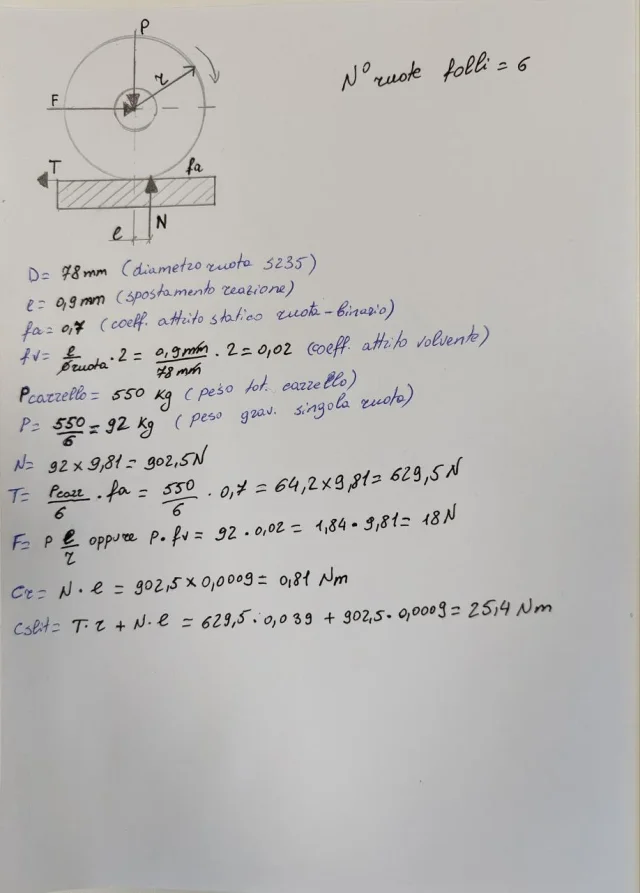 P
N° ruote folli = 6
r
F
T
fa
N
e
D= 78 mm (diametro ruota S235)
e= 0,9 mm (spostamento reazione)
fa= 0,7 (coeff. attrito statico ruota-binario)
fv= e/Øruota · 2 = 0,9 mm/78 mm · 2 = 0,02 (coeff. attrito volvente)
Pcarrello= 550 Kg (peso tot. carrello)
P= 550/6 = 92 Kg (peso grav. singola ruota)
N= 92 x 9,81 = 902,5 N
T= Pcarr/6 · fa = 550/6 · 0,7 = 64,2 x 9,81 = 629,5 N
F= P e/r oppure P · fv = 92 · 0,02 = 1,84 · 9,81 = 18 N
Cr= N · e = 902,5 x 0,0009 = 0,81 Nm
Cslit= T · r + N · e = 629,5 · 0,039 + 902,5 · 0,0009 = 25,4 Nm